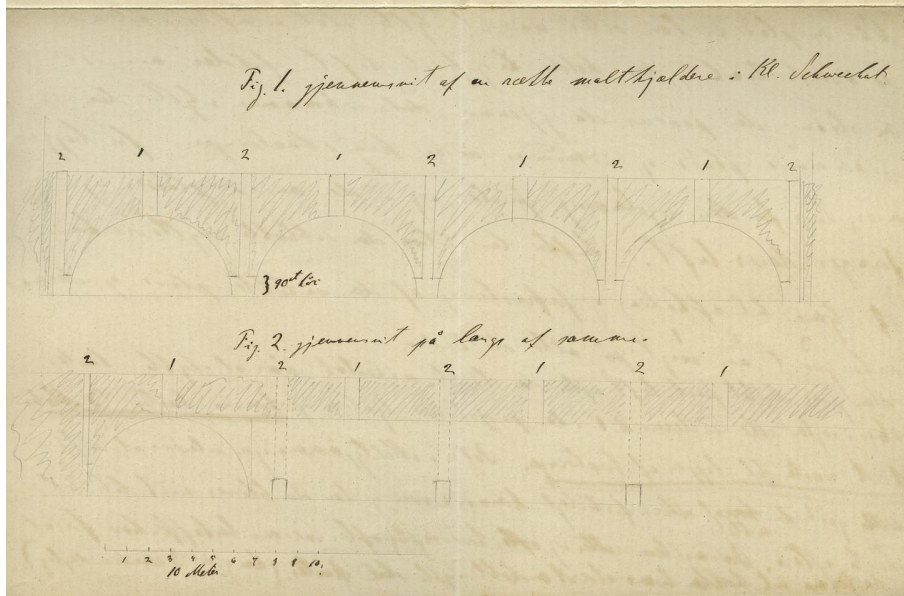 Fig 1. gjennemsnit af en række maltkjældere i Kl. Schwechat.
2 1 2 1 2 1 2 1 2
} 90 ct
Fig. 2. gjennemsnit på langs af samme.
2 1 2 1 2 1 2 1
1 2 3 4 5 6 7 8 9 10
10 Meter